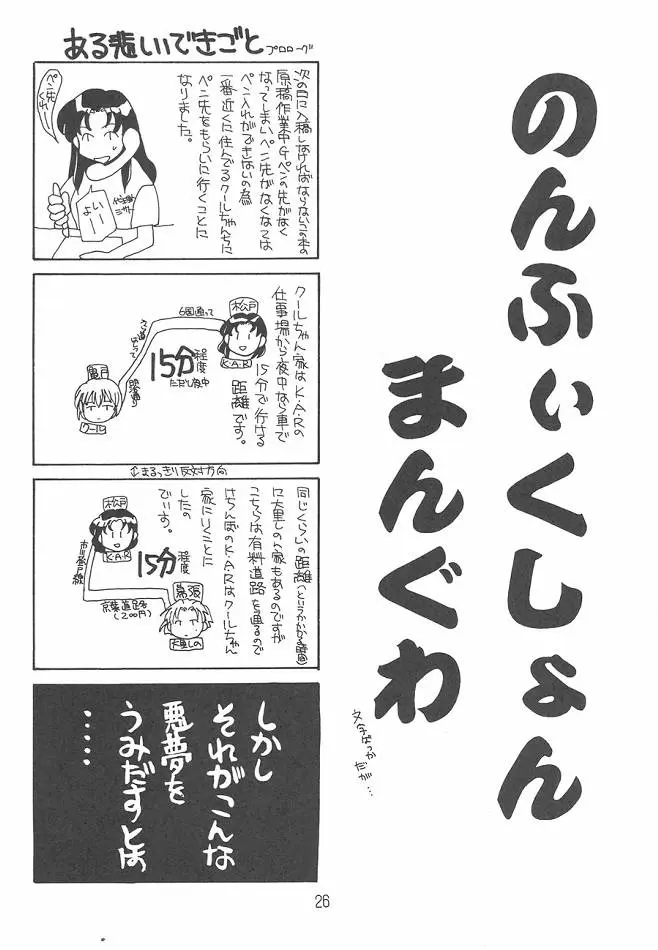 のんふぃくしょん
まんぐわ
文字ばっか
だが…
ある悲しいできごと
プロローグ
次の日に入稿しなければならないこの本の
原稿作業中Gペンの先がなく
なってしまいペン先がなくては
ペン入れができないの為
一番近くに住んでるクールちゃんちに
ペン先をもらいに行くことに
なりました。
ペン先
くれー
よい
ー
クールちゃん家はK・A・Rの
仕事場から夜中なら車で
15分で行ける
距離です。
松戸
K・A・R
6国通って
15分程度
ただし夜中
クール
↕まるっきり反対方向
同じくらいの距離(というかかかる時間)
に大里しのん家もあるのですが
こちらは有料道路を通るので
けちんぼのK・A・Rはクールちゃん
家にいくことに
したの
でぃす。
松戸
K・A・R
15分程度
市川松戸線
京葉道路
(200円)
幕張
大里しの
しかし
それがこんな
悪夢を
うみだすとは
・・・・・
26